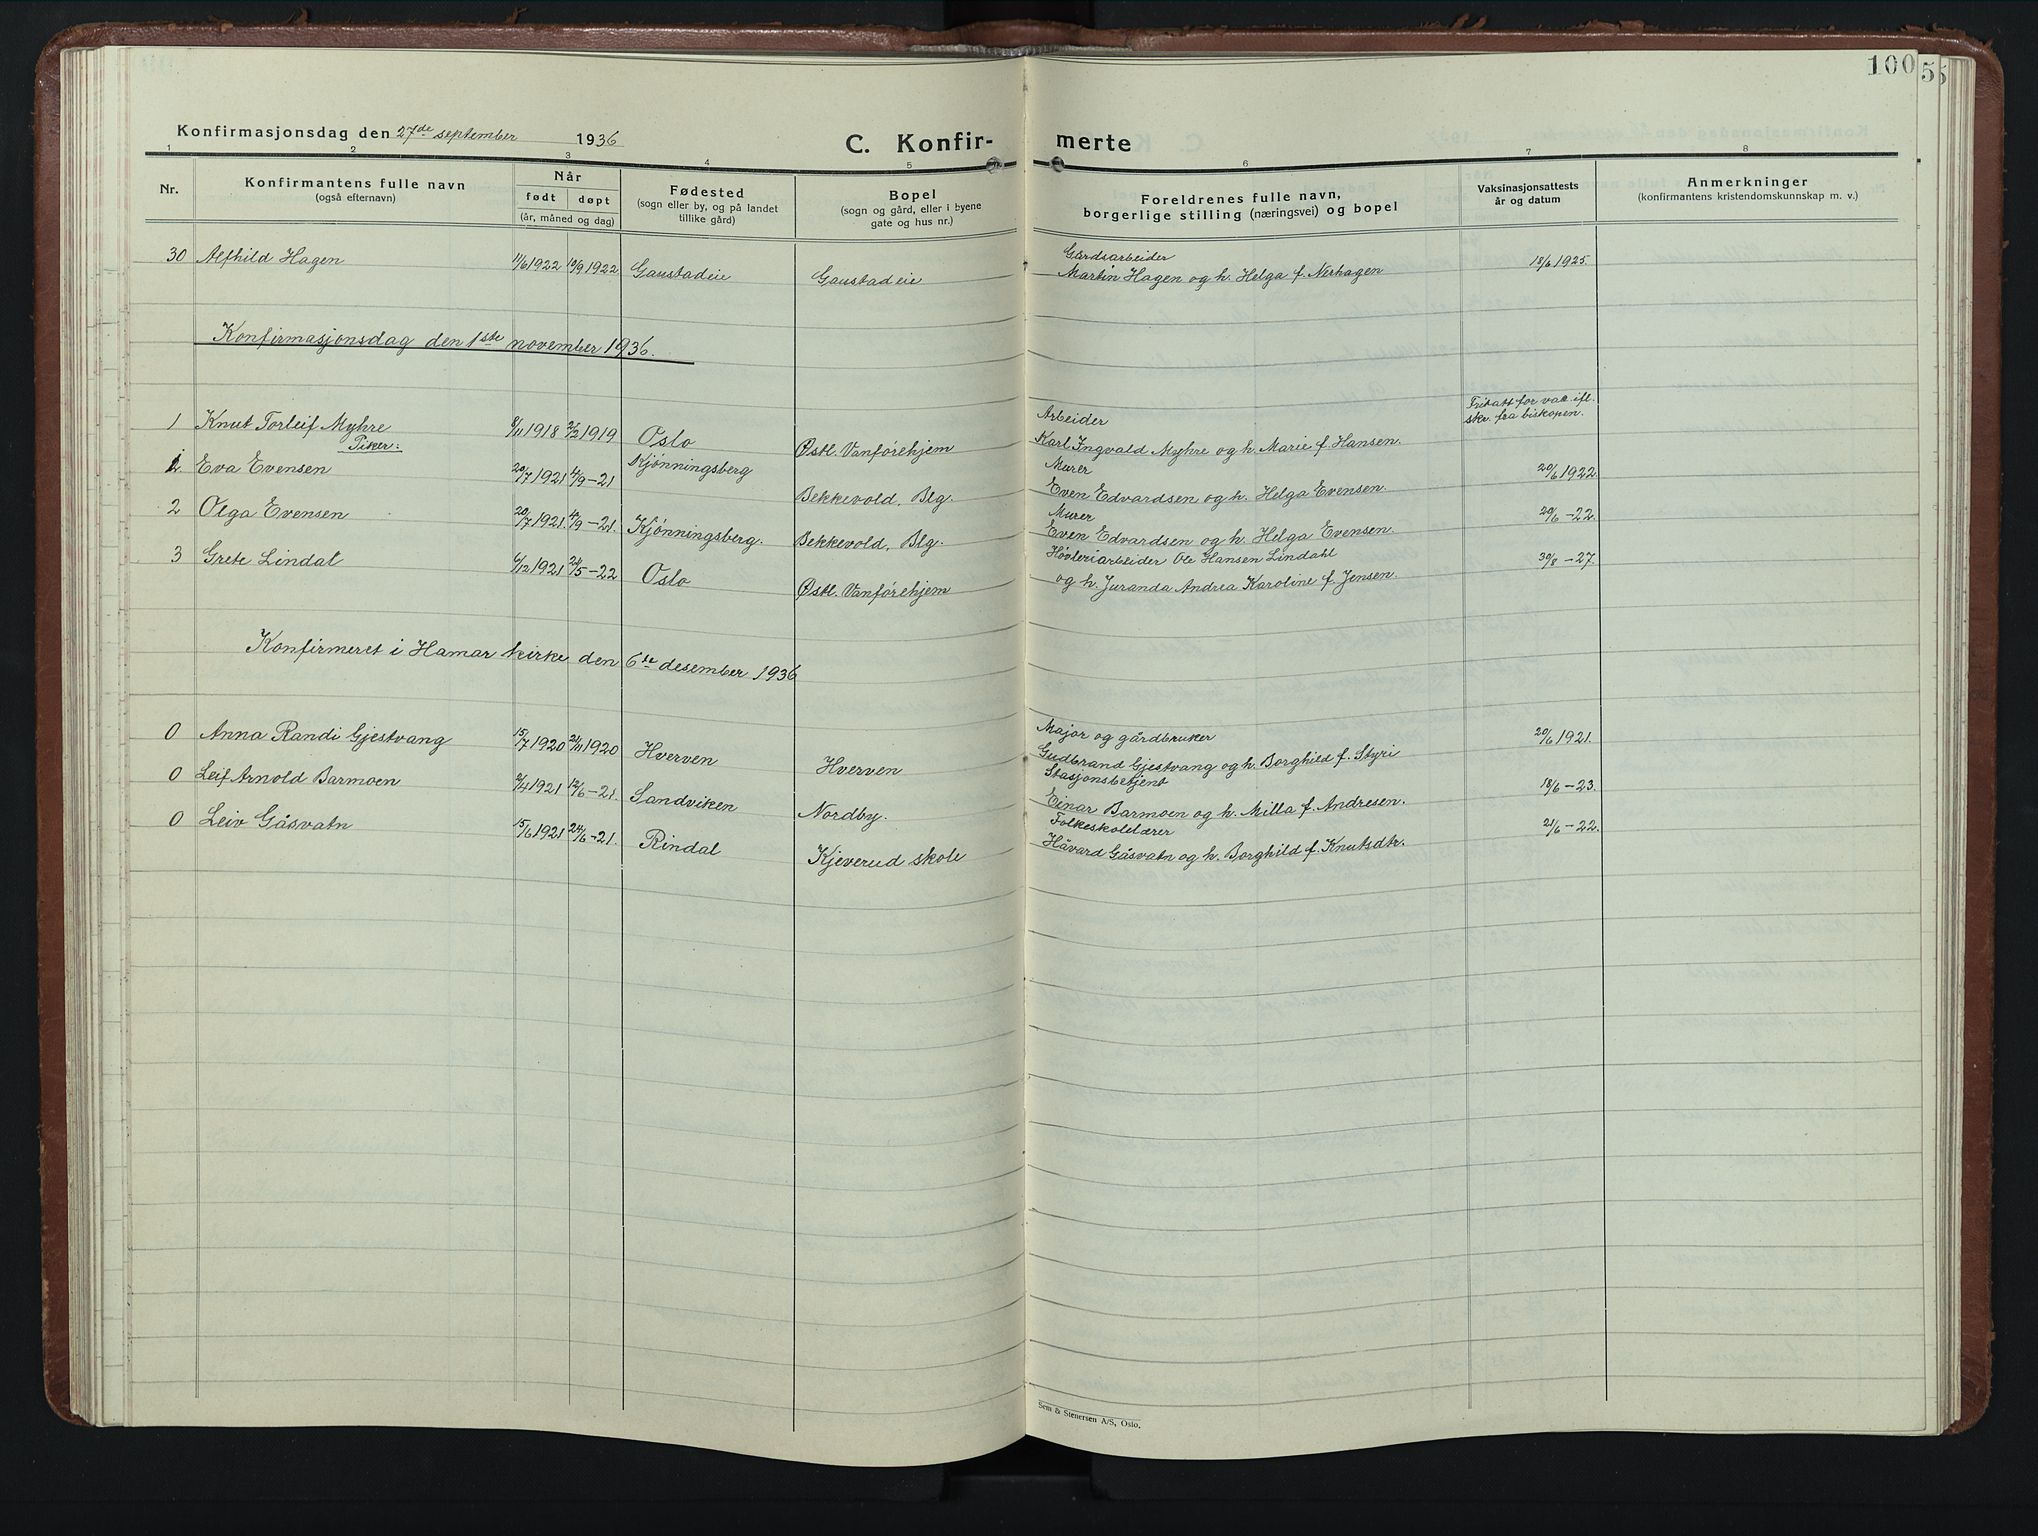 100
55
Konfirmasjonsdag den 27de september 1936
C. Konfir-
merte
1 2 3 4 5 6 7 8
Nr.
Konfirmantens fulle navn
(også efternavn)
Når
født døpt
(år, måned og dag)
Fødested
(sogn eller by, og på landet
tillike gård)
Bopel
(sogn og gård, eller i byene
gate og hus nr.)
Foreldrenes fulle navn,
borgerlige stilling (næringsvei) og bopel
Vaksinasjonsattests
år og datum
Anmerkninger
(konfirmantens kristendomskunnskap m. v.)
30 Alfhild Hagen 11/6 1922 10/9 1922 Gaustadeie Gaustadeie Gårdsarbeider
Martin Hagen og h. Helga f. Nerhagen 18/6 1925.
Konfirmasjonsdag den 1ste november 1936.
1 Knut Torleif Myhre 8/11 1918 2/2 1919 Oslo Østl. Vanførehjem Arbeider
Karl Ingvald Myhre og h. Marie f. Hansen. Fritatt for vac. ifl.
skr. fra biskopen.
Piker:
1 Eva Evensen 20/7 1921 4/9-21 Kjønningsberg Bekkevold, Blg. Murer
Even Edvardsen og h. Helga Evensen. 20/6 1922
2 Olga Evensen 20/7 1921. 4/9-21. Kjønningsberg. Bekkevold, Blg. Murer
Even Edvardsen og h. Helga Evensen. 20/6-22.
3 Grete Lindal 6/12 1921 24/5-22 Oslo Østl. Vanførehjem Høvleriarbeider Ole Hansen Lindahl
og h. Juranda Andrea Karoline f. Jensen. 30/8-27.
Konfirmeret i Hamar kirke den 6te desember 1936
0 Anna Randi Gjestvang 15/7 1920 21/11 1920 Hverven Hverven Major og gårdbruker
Gudbrand Gjestvang og h. Borghild f. Styri 20/6 1921.
0 Leif Arnold Barmoen 2/4 1921 12/6-21. Sandviken Nordby. Stasjonsbetjent
Einar Barmoen og h. Milla f. Andresen. 18/6-23.
0 Leiv Gåsvatn 15/6 1921 24/6-21. Rindal Kjeverud skole Folkeskolelærer
Håvard Gåsvatn og h. Borghild f. Knutsdtr. 21/6-22.
Sem & Stenersen A/S, Oslo.